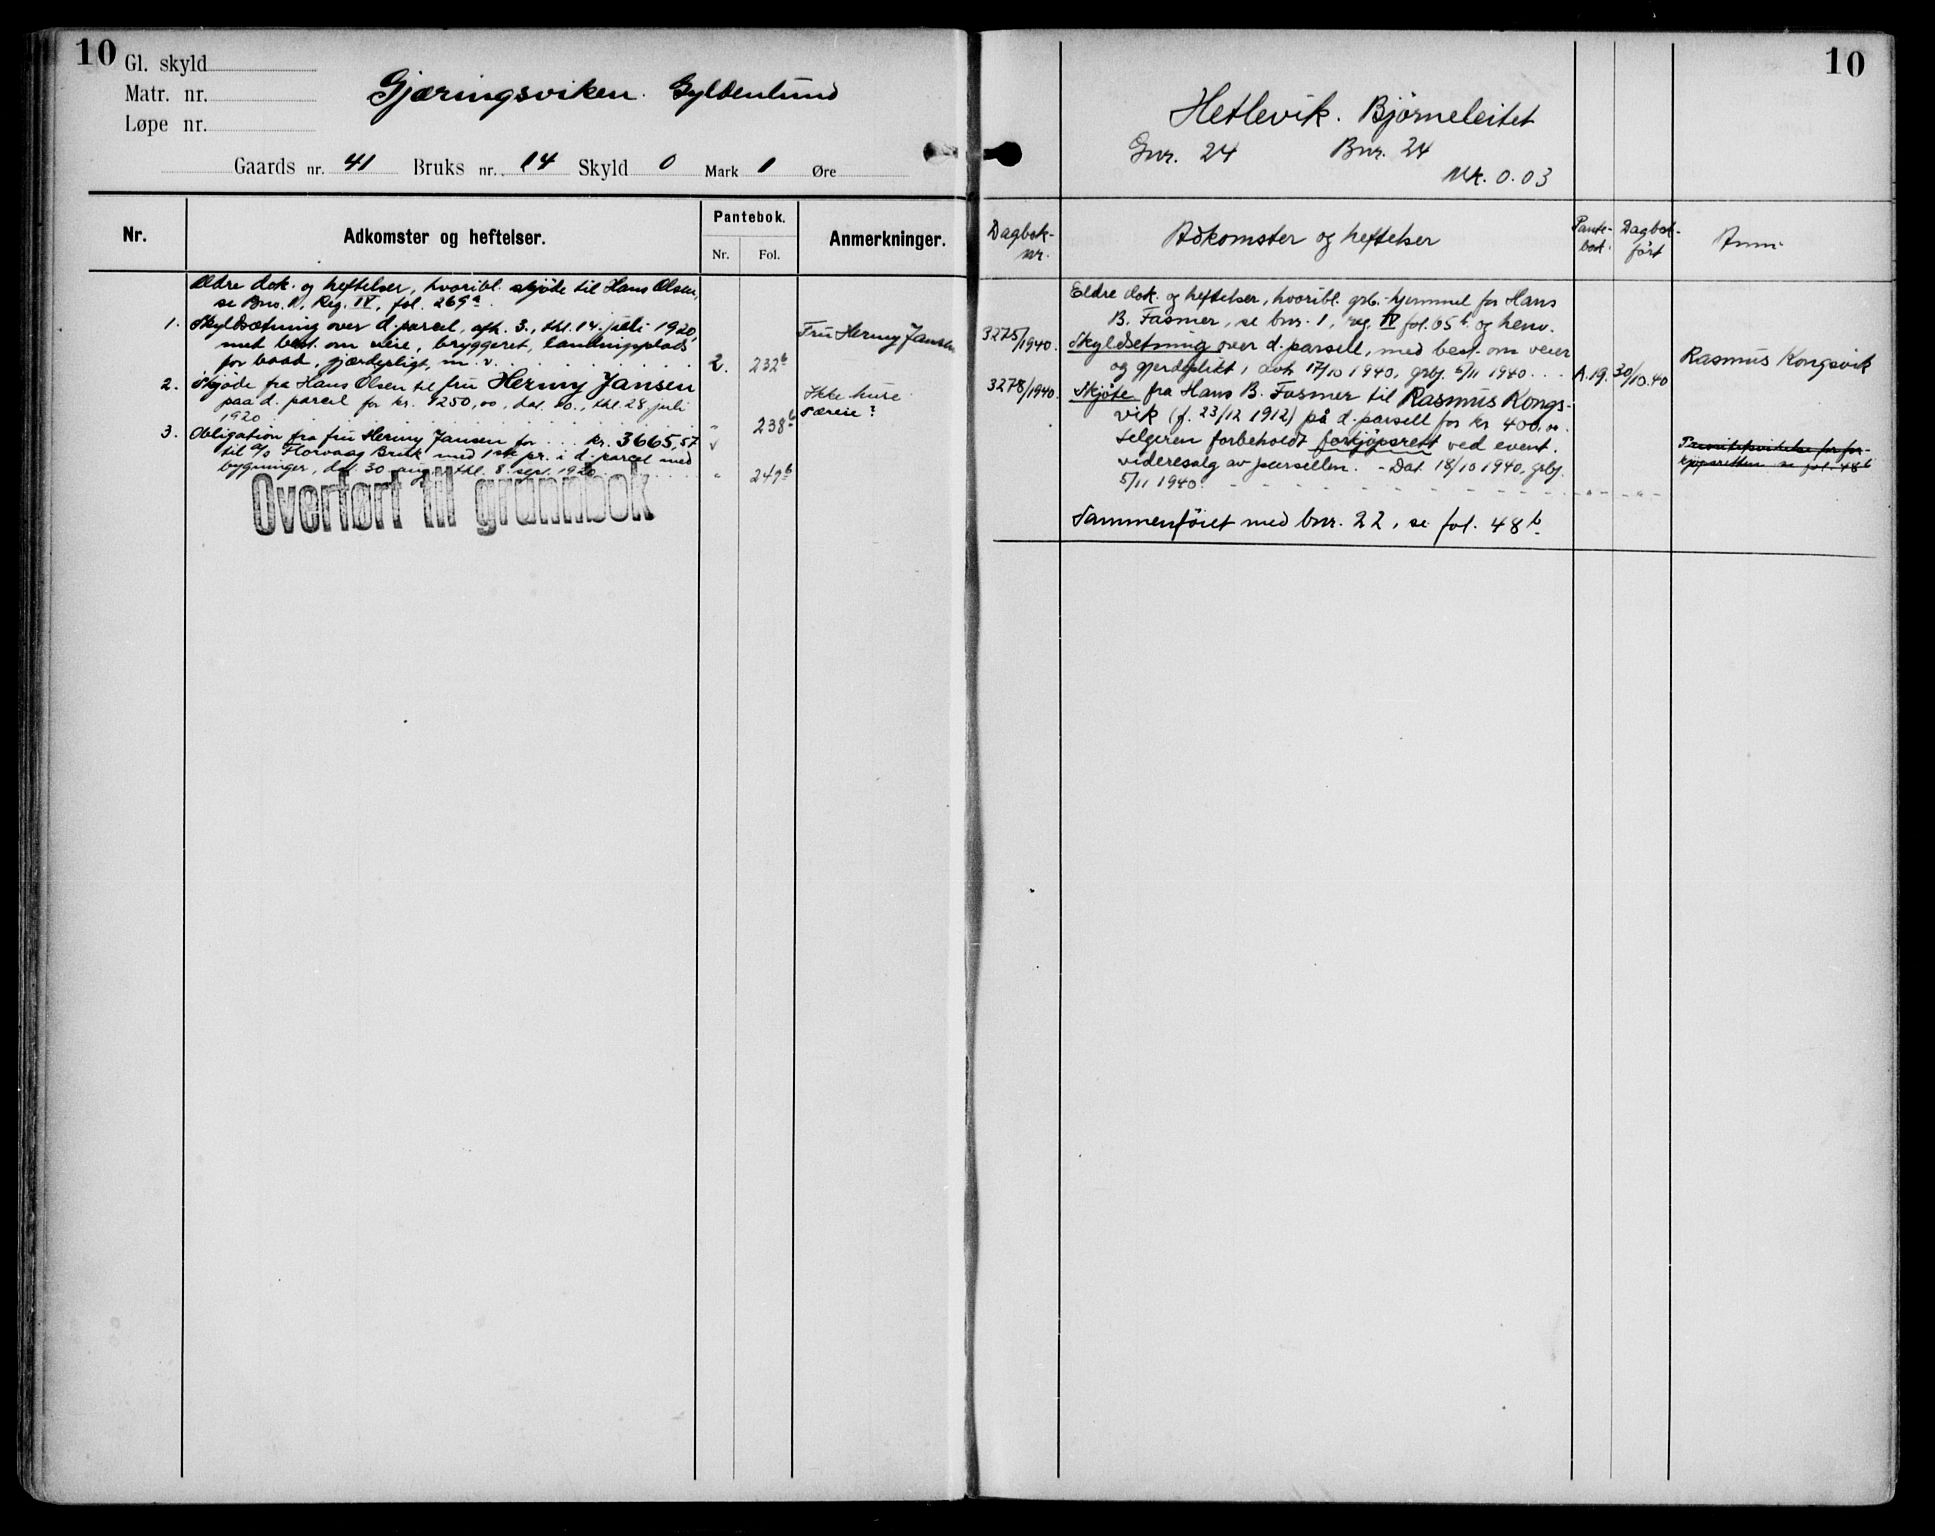 10
Gl. skyld
Matr. nr.
Løpe nr.
Gjæringsviken. Gyldenlund
Gaards nr. 41 Bruks nr. 14 Skyld 0 Mark 1 Øre
Nr.
Adkomster og heftelser.
Pantebok.
Nr. Fol.
Anmerkninger.
Ældre dok. og heftelser, hvoribl. skjøde til Hans Olsen,
se Bnr. 1, Reg. IV, fol. 269a.
1. Skyldsætning over d. parcel, afh. 3., thl. 14. juli 1920,
med best. om veie, bryggeret, landingsplads
for baad, gjærdepligt, m. v. 2. 232b
Fru Hermy Jansen
2. Skjøde fra Hans Olsen til fru Hermy Jansen
paa d. parcel for kr. 1250,00, dat. 10., thl. 28 juli
1920 " 238b
Ikke kure
særeie?
3. Obligation fra fru Hermy Jansen for kr. 3665,57 √
til a/s Florvaag Bruk med 1ste pr. i d. parcel med
bygninger, dat. 30 aug., thl. 8. sept. 1920 " 249b
Overført til grunnbok
10
Hetlevik. Bjørneleitet
Gnr. 24 Bnr. 24
Mk. 0.03
Dagbok-
nr.
Adkomster og heftelser
Pante-
bok.
Dagbok-
ført
Anm.
Eldre dok. og heftelser, hvoribl. grb.-hjemmel for Hans
B. Fasmer, se bnr. 1, reg. IV fol. 65b og henv.
3275/1940. Skyldsetning over d. parsell, med best. om veier
og gjerdeplikt, avh 17/10 1940, grbj. 5/11 1940. A.19. 30/10.40
Rasmus Kongsvik
3278/1940. Skjøte fra Hans B. Fasmer til Rasmus Kongs-
vik (f. 23/12 1912) på d. parsell for kr 400.00.
Selgeren forbeholdt forkjøpsrett ved event.
videresalg av parsellen. - Dat. 18/10 1940, grbj.
5/11 1940. - " - " -
Prioritetsvikelse for for-
kjøpsretten se fol. 48b
Sammenføiet med bnr. 22, se fol. 48b.